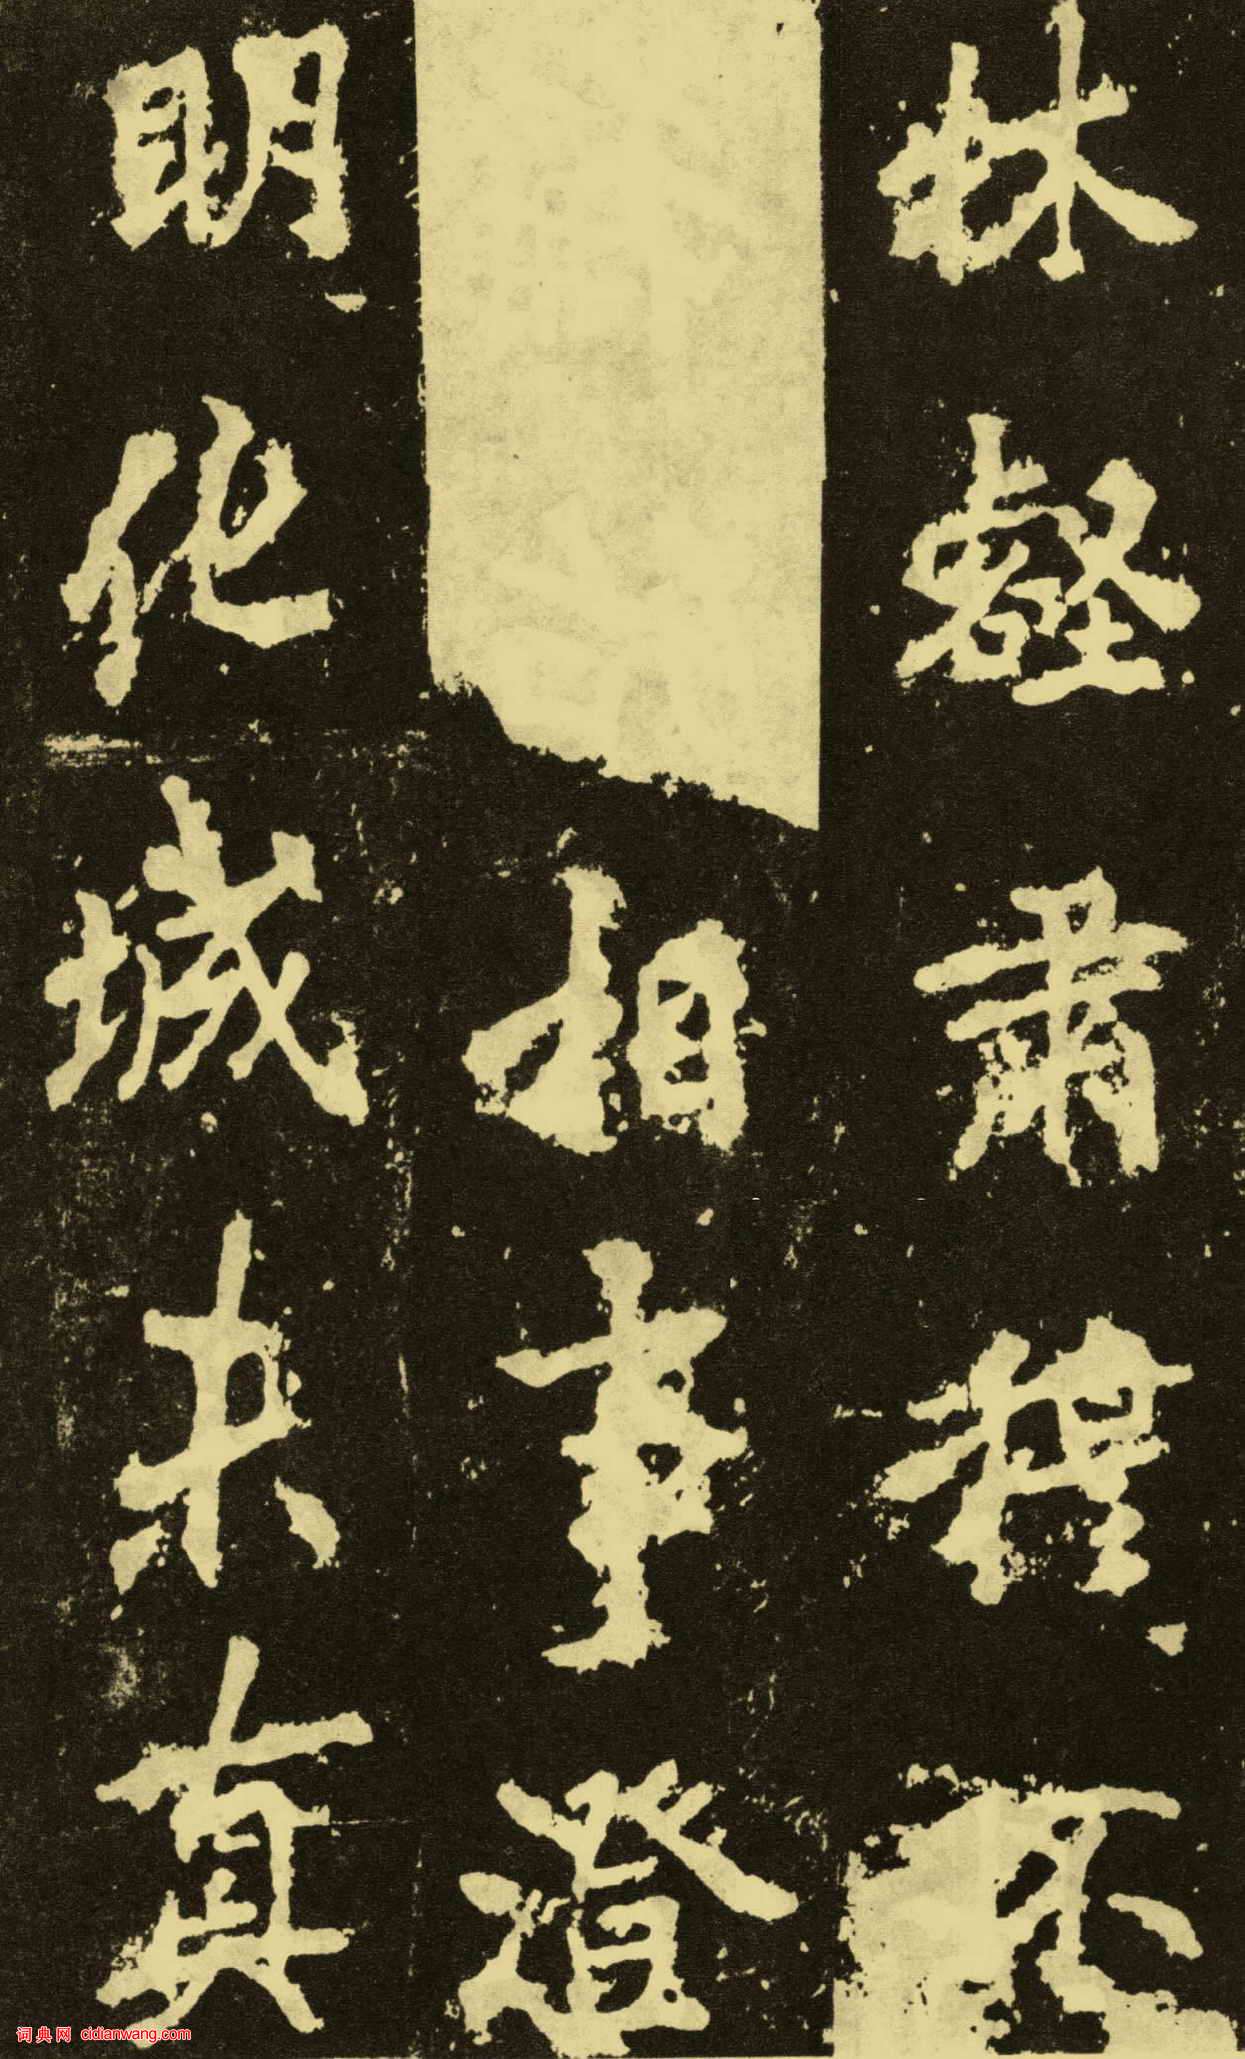 林壑肅穆不
相事澄
明化城未真
词典网 cidianwang.com